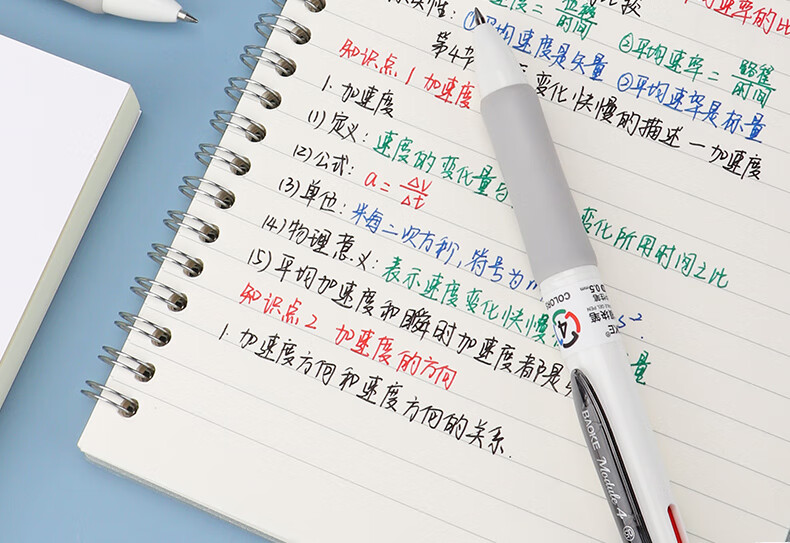 速度 = 位移/时间
较
平均速率的比
①平均速度是矢量 ②平均速率 = 路程/时间
②平均速率是标量
第4节 变化快慢的描述一加速度
知识点1 加速度
1. 加速度
(1)定义: 速度的变化量与 变化所用时间之比
(2)公式: a = Δv/Δt
(3)单位: 米每二次方秒, 符号为 s²
(4)物理意义: 表示速度变化快慢 量
(5)平均加速度和瞬时加速度都是
知识点2 加速度的方向
1. 加速度方向和速度方向的关系.
4
COLOR
0.5mm
BAOKE Module 4